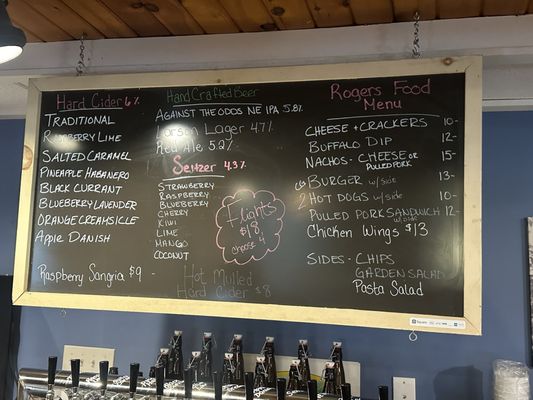 Hard Cider 6%
TRADITIONAL
RASPBERRY LIME
SALTED CARAMEL
PINEAPPLE HABANERO
BLACK CURRANT
BLUEBERRY LAVENDER
ORANGE CREAMSICLE
Apple DANISH
Raspberry Sangria $9
Hand Crafted Beer
AGAINST THE ODDS NE IPA 5.8%
Larson Lager 4.7%
Red Ale 5.2%
Seltzer 4.3%
STRAWBERRY
RASPBERRY
BLUEBERRY
CHERRY
KIWI
LIME
MANGO
COCONUT
Flights
$18
choose 4
Hot Mulled
Hard Cider $8
Rogers Food
Menu
CHEESE + CRACKERS 10-
BUFFALO DIP 12-
NACHOS - CHEESE OR PULLED PORK 15-
BURGER w/ side 13-
2 HOT DOGS w/ side 10-
PULLED PORK SANDWICH w/ side 12-
Chicken Wings $13
SIDES - CHIPS
GARDEN SALAD
Pasta Salad